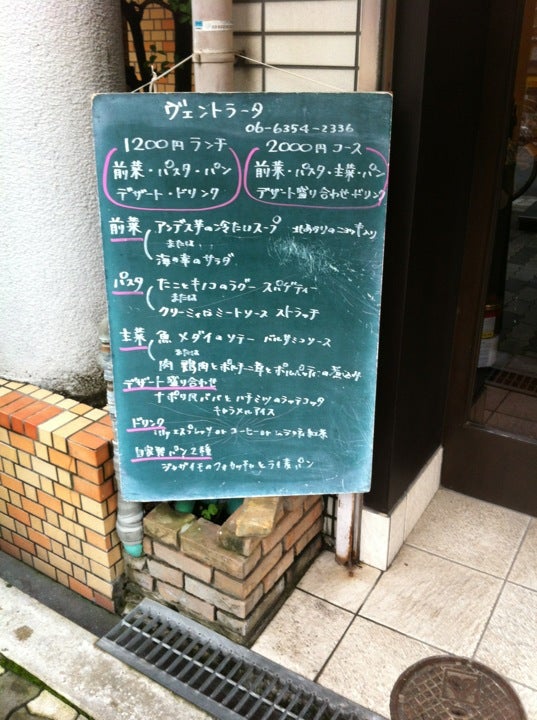 ヴェントラータ
06-6354-2336
1200円 ランチ
前菜・パスタ・パン
デザート・ドリンク
2000円 コース
前菜・パスタ・主菜・パン
デザート盛り合わせ・ドリンク
前菜 アンデス芋の冷たいスープ 北あかりのニョッキ入り
または
海の幸のサラダ
パスタ たことキノコのラグー スパゲティー
または
クリーミィなミートソース ストラッチ
主菜 魚 メダイのソテー バルサミコソース
または
肉 鶏肉とポルチーニ茸と の煮込み
デザート盛り合わせ
ナポリ風ババとハチミツのパンナコッタ
キャラメルアイス
ドリンク
illy エスプレッソ or コーヒー or 紅茶
自家製パン2種
ジャガイモのフォカッチャとライ麦パン